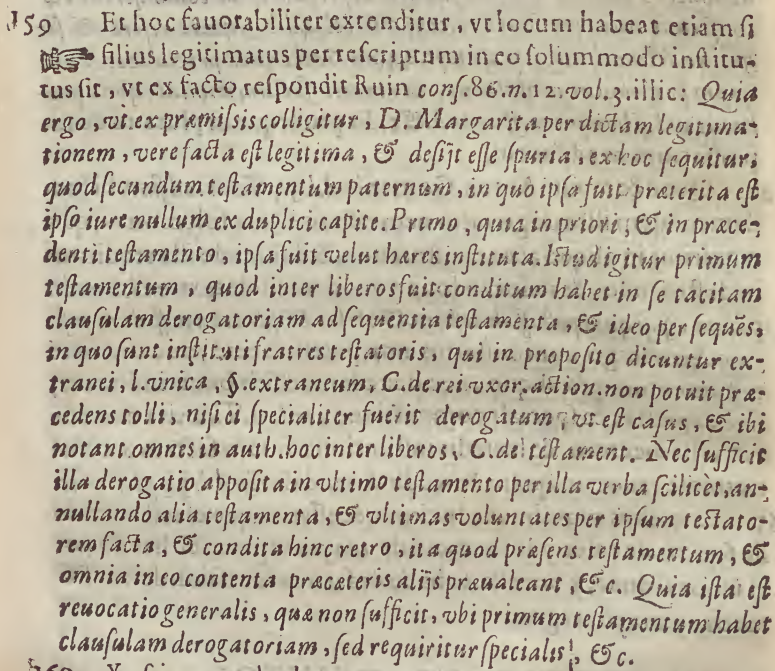 159 Et hoc fauorabiliter extenditur, vt locum habeat etiam si
filius legitimatus per rescriptum in eo solummodo institu-
tus sit, vt ex facto respondit Ruin cons.86.n.12.vol.3.illic: Quia
ergo, vt ex præmissis colligitur, D. Margarita per dictam legitima-
tionem, vere facta est legitima, & desijt esse spuria, ex hoc sequitur,
quod secundum testamentum paternum, in quo ipsa fuit præterita est
ipso iure nullum ex duplici capite. Primo, quia in priori, & in præce-
denti testamento, ipsa fuit velut hæres instituta. Istud igitur primum
testamentum, quod inter liberos fuit conditum habet in se tacitam
clausulam derogatoriam ad sequentia testamenta, & ideo per sequẽs,
in quo sunt instituti fratres testatoris, qui in proposito dicuntur ex-
tranei, l.vnica, §.extraneum, C.de rei vxor.action.non potuit præ-
cedens tolli, nisi ei specialiter fuerit derogatum, vt est casus, & ibi
notant omnes in auth.hoc inter liberos, C.de testament. Nec sufficit
illa derogatio apposita in vltimo testamento per illa verba scilicèt, an-
nullando alia testamenta, & vltimas voluntates per ipsum testato-
rem facta, & condita hinc retro, ita quod præsens testamentum, &
omnia in eo contenta præcæteris alijs præualeant, &c. Quia ista est
reuocatio generalis, quæ non sufficit, vbi primum testamentum habet
clausulam derogatoriam, sed requiritur specialis, &c.